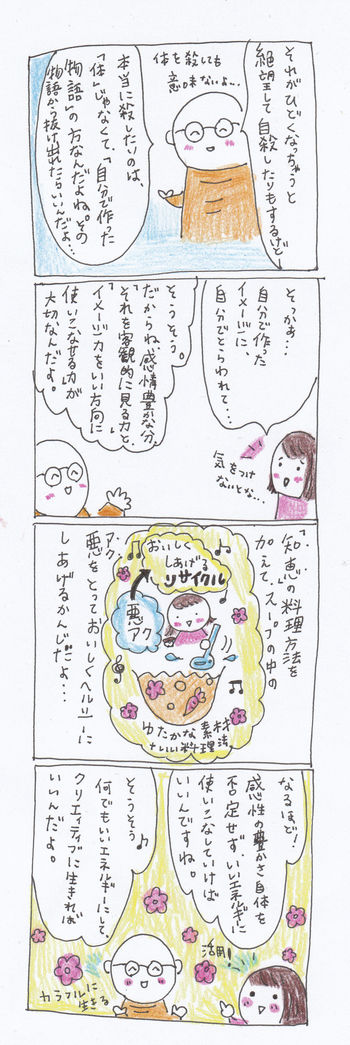 それがひどくなっちゃうと
絶望して自殺したりもするけど
体を殺しても
意味ないよ…
本当に殺したいのは、
「体」じゃなくて、「自分で作った
物語」の方なんだよね。その
物語から抜け出れたらいいんだよ…
そっかぁ…
自分で作った
イメージに、
自分でとらわれて…
気をつけ
ないとな…
そうそう。
だからね、感情豊かな分、
「それを客観的に見る力」と、
「イメージ力をいい方向に
使いこなせる力」が
大切なんだよ。
「知恵」の料理方法を
加えて、スープの中の
おいしく
しあげる
リサイクル
悪
アク
ゆたかな素材
+いい料理法
アク
悪をとっておいしくヘルシーに
しあげるかんじだよ…
なるほど!
感性の豊かさ自体を
否定せず、いいエネルギーに
使いこなしていけば
いいんですね。
活用!
そうそう♪
何でもいいエネルギーにして、
クリエイティブに生きれば
いいんだよ。
カラフルに
生きる